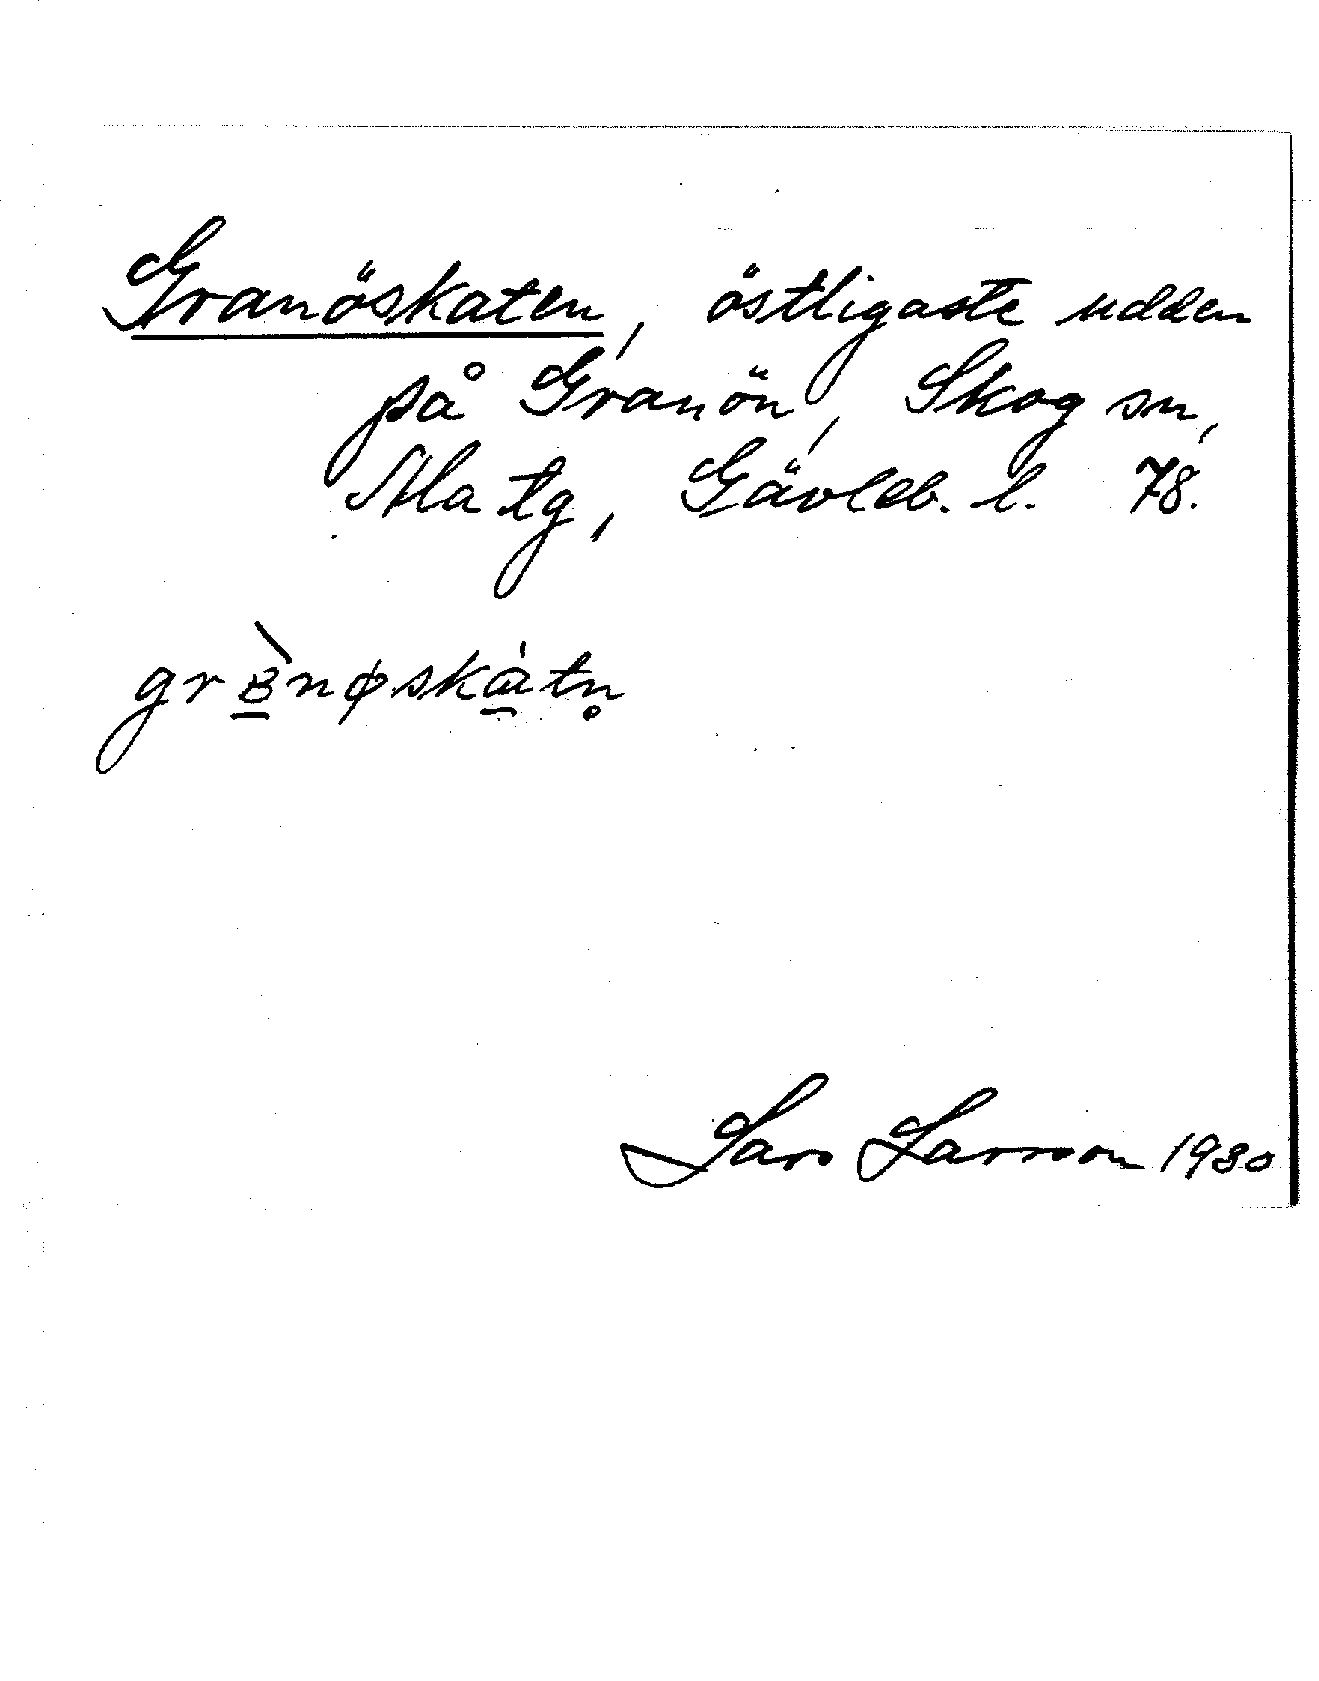 Granöskaten, östligaste udden
på Granön, Skog sn,
Ala tg, Gävleb. l. 78.
Lars Larsson 1930